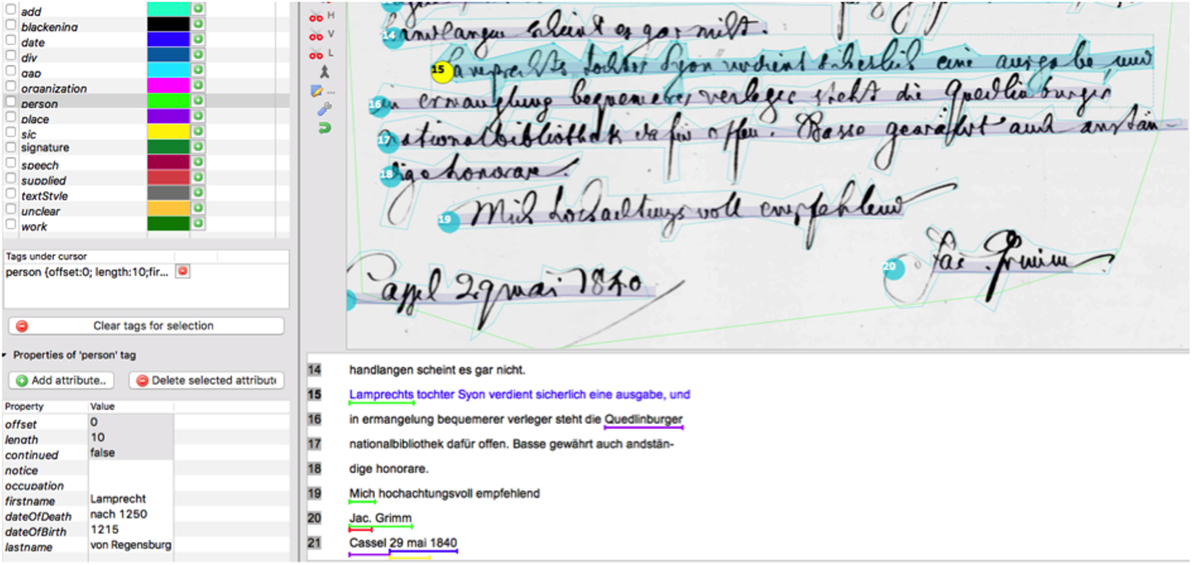 add
blackening
date
div
gap
organization
person
place
sic
signature
speech
supplied
textStyle
unclear
work
Tags under cursor
person {offset:0; length:10;fir...
Clear tags for selection
Properties of 'person' tag
Add attribute..
Delete selected attribute
Property Value
offset 0
length 10
continued false
notice
occupation
firstname Lamprecht
dateOfDeath nach 1250
dateOfBirth 1215
lastname von Regensburg
H
V
L
...
14 handlangen scheint es gar nicht.
15 Lamprechts tochter Syon verdient sicherlich eine ausgabe, und
16 in ermanglung bequemerer verleger steht die Quedlinburger
17 nationalbibliothek dafür offen. Basse gewährt auch anstän-
18 dige honorare.
19 Mich hochachtungsvoll empfehlend
20 Jac. Grimm
Cassel 29 mai 1840
14 handlangen scheint es gar nicht.
15 Lamprechts tochter Syon verdient sicherlich eine ausgabe, und
16 in ermangelung bequemerer verleger steht die Quedlinburger
17 nationalbibliothek dafür offen. Basse gewährt auch andstän-
18 dige honorare.
19 Mich hochachtungsvoll empfehlend
20 Jac. Grimm
21 Cassel 29 mai 1840